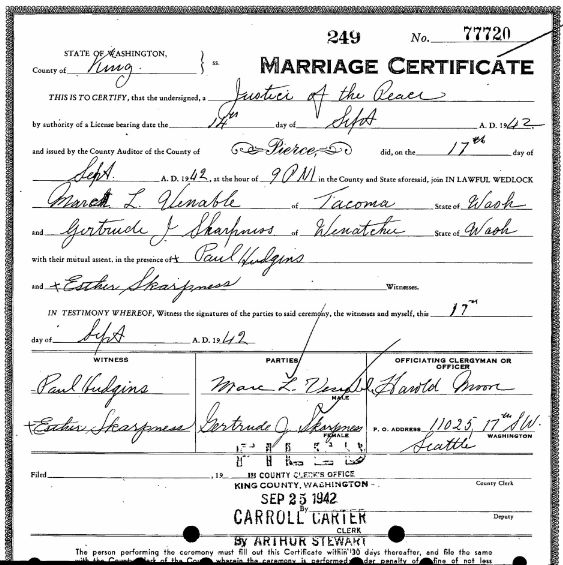 249 No. 77720
STATE OF WASHINGTON,
County of King } ss.
MARRIAGE CERTIFICATE
THIS IS TO CERTIFY, that the undersigned, a Justice of the Peace
by authority of a License bearing date the 14th day of Sept A. D. 1942
and issued by the County Auditor of the County of Pierce, did, on the 17th day of
Sept. A. D. 1942, at the hour of 9 PM in the County and State aforesaid, join IN LAWFUL WEDLOCK
Marc L. Venable of Tacoma State of Wash
and Gertrude J Skarpness of Wenatchee State of Wash
with their mutual assent, in the presence of x Paul Hudgins
and x Esther Skarpness Witnesses.
IN TESTIMONY WHEREOF, Witness the signatures of the parties to said ceremony, the witnesses and myself, this 17th
day of Sept A. D. 1942
WITNESS PARTIES OFFICIATING CLERGYMAN OR OFFICER
Paul Hudgins Marc L. Venable Harold Moon
MALE
x Esther Skarpness Gertrude J. Skarpness P. O. ADDRESS 11025 17th S.W.
FEMALE Seattle WASHINGTON
FILED
Filed , 19 IN COUNTY CLERK'S OFFICE
KING COUNTY, WASHINGTON County Clerk
SEP 25 1942
By
CARROLL CARTER Deputy
CLERK
By ARTHUR STEWART
The person performing the ceremony must fill out this Certificate within 30 days thereafter, and file the same
with the County Clerk of the County wherein the ceremony is performed under penalty of a fine of not less